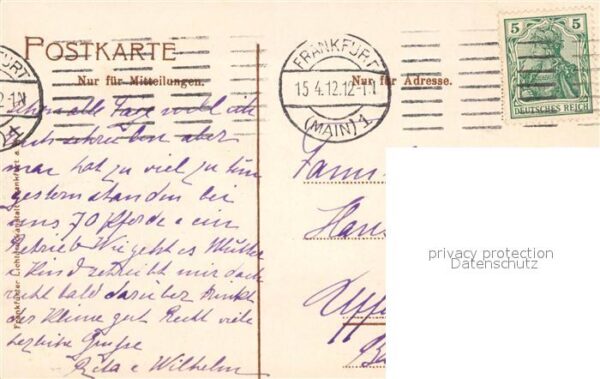 POSTKARTE
Nur für Mitteilungen.
Nur für Adresse.
FRANKFURT
15.4.12.12-1N
(MAIN) 1
5 5
DEUTSCHES REICH
schon alle Tage wollt ich
euch schreiben aber
man hat zu viel zu tun
gestern standen bei
uns 70 Pferde e ein
Betrieb Wie geht es Mutter
e Kind schreibt mir doch
recht bald darüber trinkt
der Kleine gut Recht viele
herzliche Grüße
Rita e Wilhelm
Fam
Han
Uffe
Ba
privacy protection
Datenschutz
Frankfurter Lichtdruckanstalt